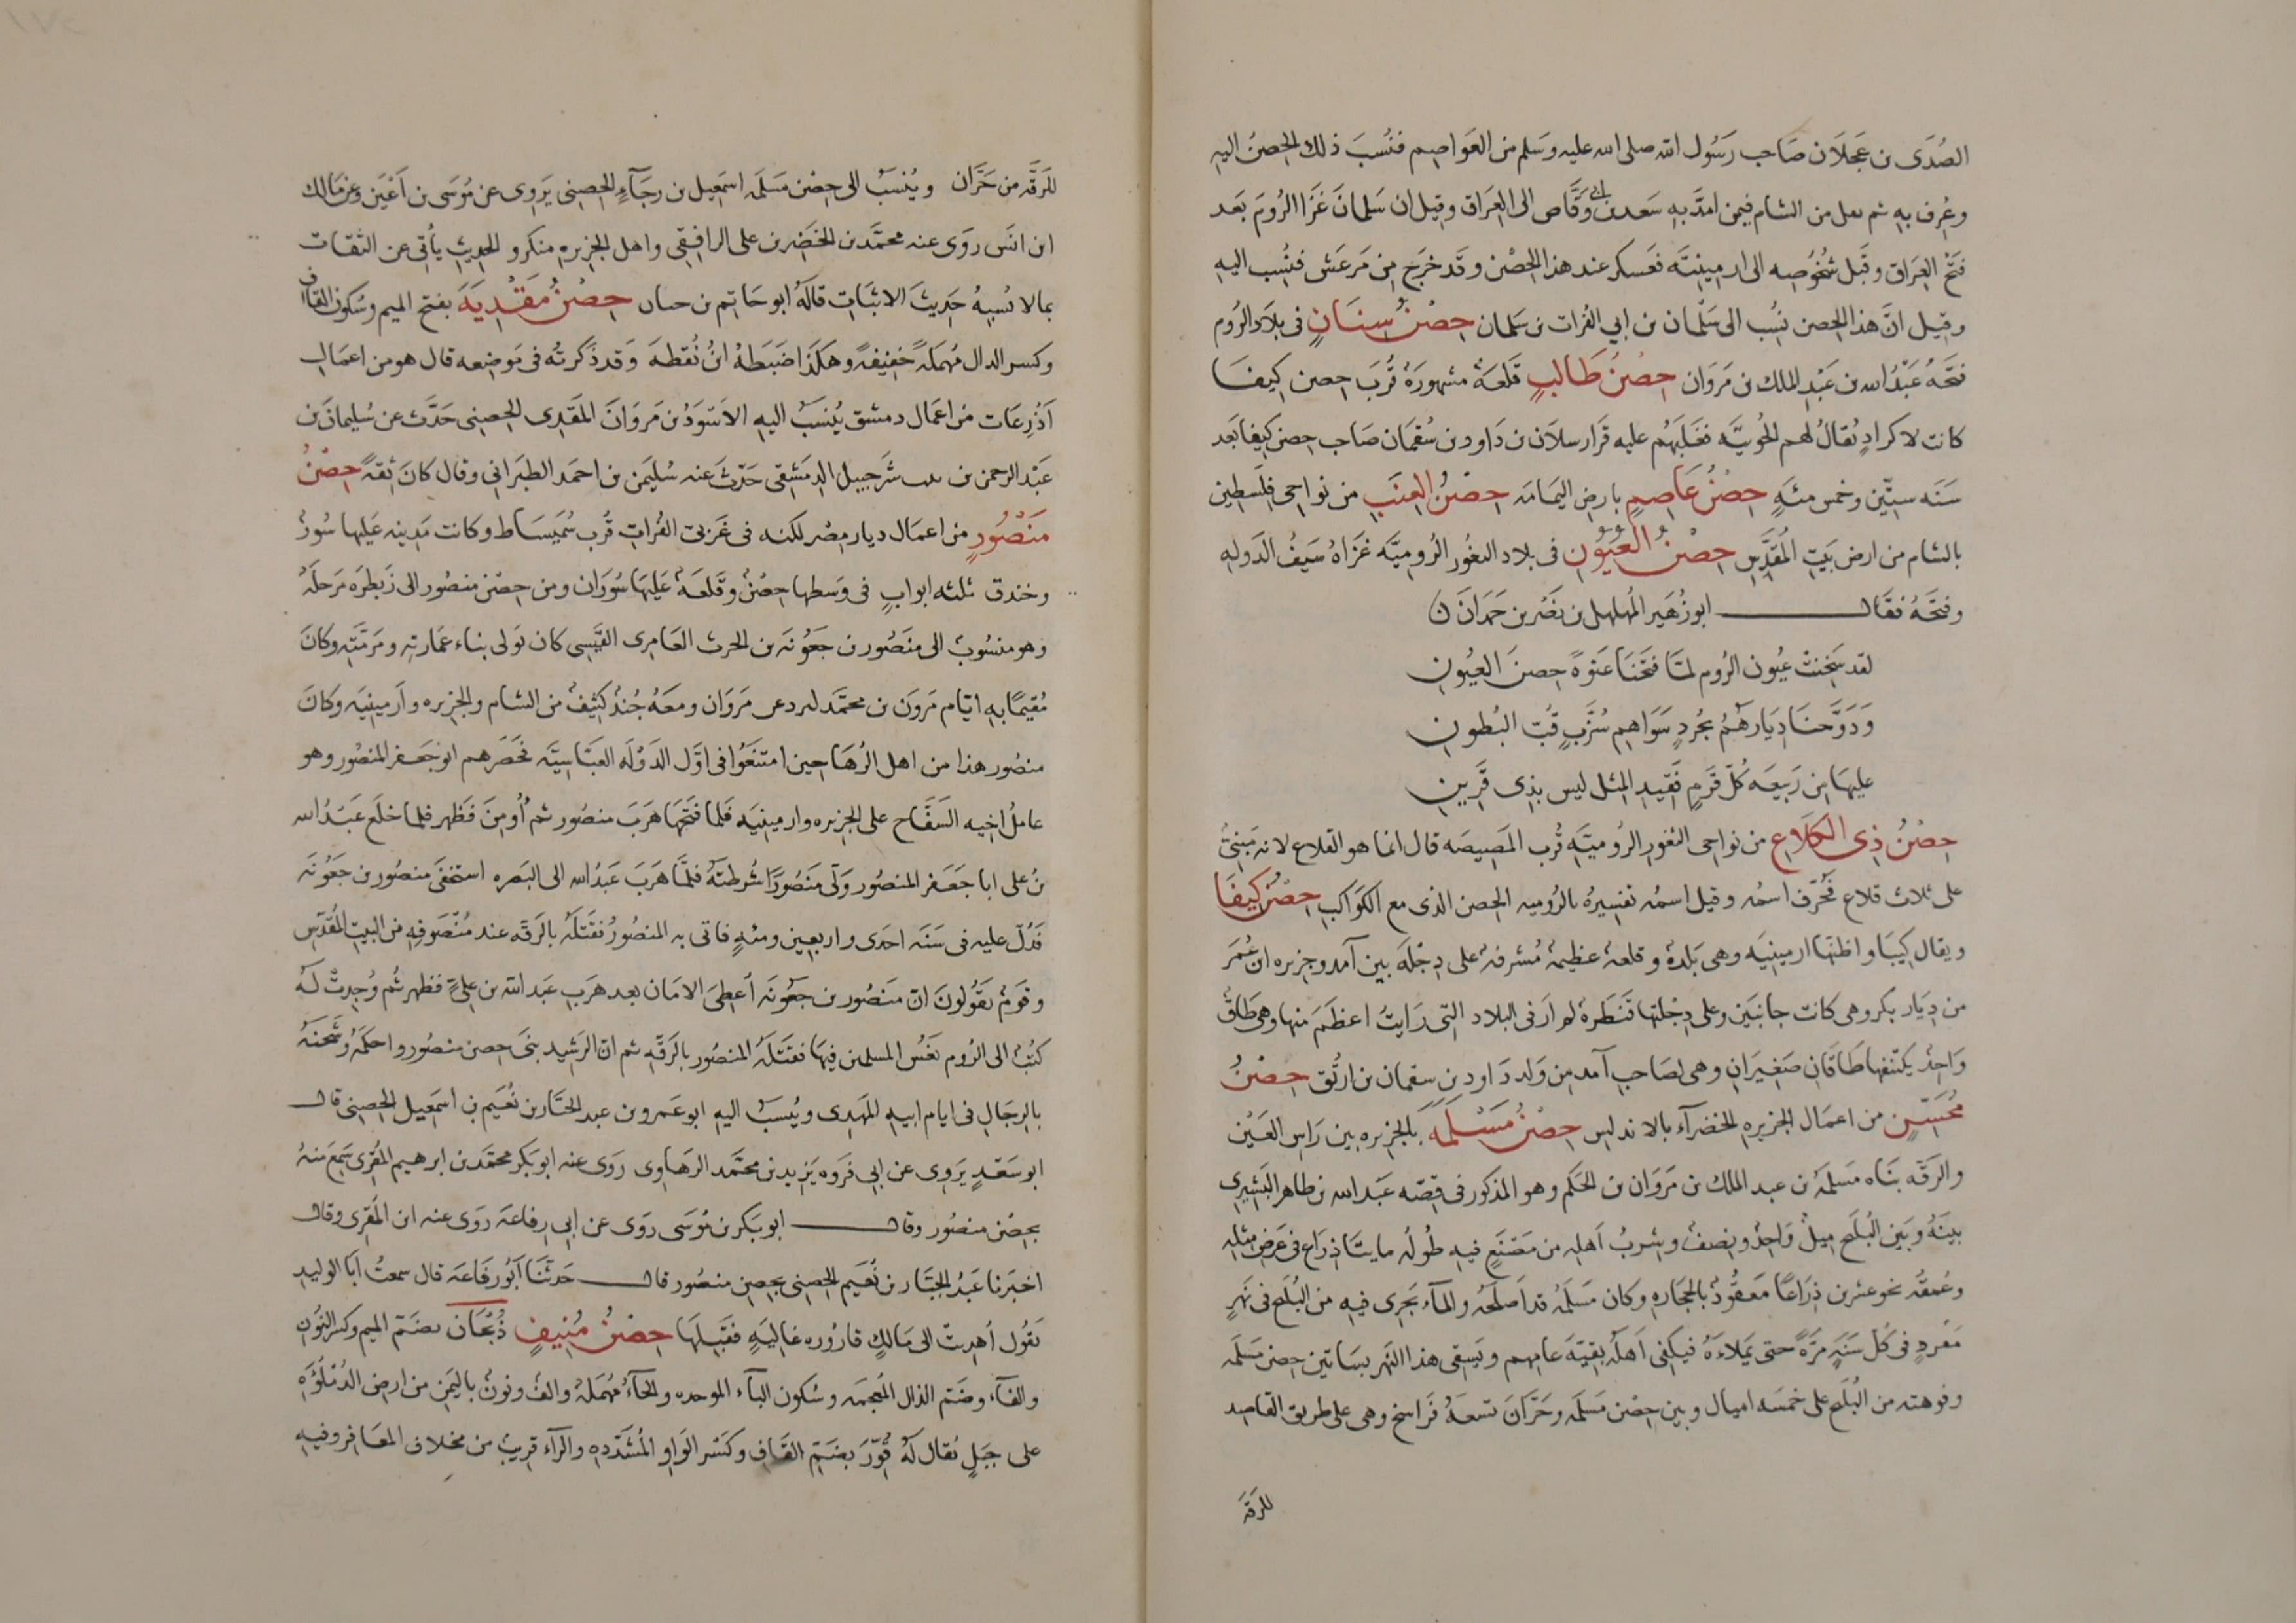 الصُدَى بن عَجلَان صَاحب رَسُول الله صلى الله عليه وسَلم من العَواصِم فنُسبَ ذلك الحصنُ اليهِ
وعُرف بهِ ثم نعل من الشام فيمن امدَّ بهِ سَعد بن ابى وقَّاص الى العِرَاق وقيل ان سَلمانَ غزَا الرُومَ بَعد
فتح العِرَاق وقَبل شُخُوصِه الى ارمينيَّه فعَسكر عند هذا الحِصْن وقَد خرَج مِن مَرعَش فنُسِب اليهِ
وقيل انَّ هذا الحِصن نُسِب الى سَلْمان بن ابى الفُرات بن سَلمان حِصْنُ سِنَانٍ فى بِلَاد الرُوم
فتحَهُ عَبْدُ الله بن عَبْدِ الملك بن مَروَان حِصْنُ طَالبٍ قلعَةٌ مشهورَةٌ قُربَ حِصن كيفَا
كانت لاكرادٍ يُقالُ لهم الجُوبيَّه فغَلَبَهُم عليه قرَارسلَان بن دَاود بن سُقمَان صَاحب حِصن كيفا بَعد
سَنَه ستِّين وخمس مئَةٍ حِصْنُ عَاصِمٍ بارضِ اليمَامَه حِصْنُ العِنَبِ من نواحِى فِلَسطين
بالشام من ارض بَيتِ المُقدَّسِ حِصْنُ العُيُونِ فى بلاد الثغُور الرُوميَّه غزَاهُ سَيفُ الدَوله
وفتحَهُ فقَال ابو زُهَير المُهلهل بن نصْر بن حَمدَانَ
لقد سَخِنتْ عُيون الرُوم لمَّا فتحنَا عَنوَةً حِصنَ العيُونِ
وَدَوَّخنَا دِيَارهُمُ بجُردٍ سَوَاهِم شُزَّبٍ قُبِّ البُطونِ
عليهَا مِن رَبيعَه كُلُّ قَرمٍ فَقيدِ المِثل ليس بذِى قَرِينِ
حِصْنُ ذِى الكَلَاعِ من نواحِى الثغورِ الرُوميَّهِ قُربِ المَصِيصَه قال انما هو القِلاع لانه مَبْنِىٌّ
على ثلاث قلاع فحُرِّف اسمُه وقيل اسمُه تفسِيرُهُ بالرُوميه الحِصن الذى مع الكَوَاكب حِصْنُ كيفَا
ويقال كِيبَا واظنّهَا ارمينيَه وهى بَلدَةٌ وقلعةٌ عظيمةٌ مُشرفةٌ على دِجْلَه بين آمد وجزيره ابن عُمَر
من دِيَار بكر وهى كانت جانبَين وعلى دِجْلتها قَنطَرةٌ لم ارَ فى البلاد التى رَايتُ اعظَمَ منها وهى طَاقٌ
وَاحِدٌ يكتنفها طَاقانِ صَغيرَانِ وهى لصَاحب آمد مِن وَلد دَاود بن سقمان بن ارتُق حِصْنُ
مُحَسَّنٍ من اعمَال الجزيرهِ الخضرآءِ بالاندلس حِصْنُ مَسْلَمَهَ بالجزيره بين رَاسِ العَيْن
والرَقَّه بنَاه مَسلمَهُ بن عبد الملك بن مَروَان بن الحَكم وهو المذكور فى قِصّه عَبد الله بن طاهر
بينَهُ وبَين البُلَيخ مِيلٌ وَاحِدٌ ونِصفٌ وشربُ اَهلِه من مَصْنَعٍ فيه طُولُه مايتَا ذِرَاع فى عَرْضٍ مثلِه
وعُمقُه نحو عشرين ذِرَاعًا مَعقُودٌ بالحجاره وكان مَسلمهُ قد اَصلحَهُ والمآء يَجرى فيهِ من البُلَيخ فى نَهرٍ
مفردٍ فى كُل سَنَهٍ مَرَّةً حتى يَملَأَهُ فيكفى اَهلَهُ بقيّهَ عامِهم ويَسقى هذا النَهر بسَاتين حِصن مَسلمَه
وفوهته من البُلَيخ على خمسَه اميال وبين حِصن مَسلَمَه وحَرَّانَ تسعَهُ فَرَاسخ وهى على طريق القاصِد
للرَقّهَ
للرَقَّه من حَرَّان ويُنْسَبُ الى حِصْن مَسلَمَه اسمَعيل بن رجَآءٍ الحِصنى يَروى عن مُوسَى بن اَعْيَن وعن مَالك
ابن انسَ روَى عنه محمَّد بن الخَضِر بن على الرافِقى واهل الجزيره منكرو الحديثِ يأتى عن الثقات
بما لا يُشبهُ حَديثَ الاثبَات قالَهُ ابو حَاتِم بن حبان حِصْنُ مَقْدِيَهَ بفتح الميم وسُكون القاف
وكسر الدال مُهمَلهً خَفيفهً وهكذَا ضَبَطهُ ابنُ نُقطهَ وَقد ذَكرتُه فى مَوضِعه قال هو من اعمَالِ
اَذْرِعَات من اعمَال دمشق يُنسَبُ اليه الاَسَوَدُ بن مَروَانَ المَقدِى الحِصنى حَدَّث عن سُليمانَ بن
عَبْد الرحمن بن بنت شُرَحبيل الدِمَشقى حَدَّثَ عنه سُليَمن بن احمَد الطبَرانى وقال كانَ ثقهً حِصْنُ
مَنصُورٍ من اعمَال ديار مضر لكنه فى غَربىّ الفُراتِ قُربَ سُمَيسَاط وكانت مَدينه عَلَيها سُورٌ
وخندق ثلثه ابوابٍ فى وَسَطها حِصْنٌ وقَلعَةٌ عَليهَا سُورَان ومن حِصن منصُور الى زَبطرَه مَرحلَهٌ
وهو منسُوبٌ الى منصُور بن جَعوَنَه بن الحرث العَامِرى القَيسِى كان تولى بناء عمَارتِه ومَرَمَّتِه وكانَ
مُقيمًا به ايّام مَروَن بن محمَّد ليردع مَروَان ومعَهُ جُندٌ كَثيفٌ من الشام والجزيره وارمينيَه وكانَ
منصُور هذا من اهل الرُهَا حين امتنَعُوا فى اوَّل الدَوْلَه العَبَّاسيَّه فحصَرهم ابو جَعفر المنصُور وهو
عامل اخِيه السَفَّاح على الجزيره وارمينيَه فلما فتَحَهَا هَرَبَ منصُور ثم اُومِنَ فظهر فلما خلَع عَبدُ الله
بنُ على ابا جَعَفر المنصُور وَلّى منصُورًا شُرطتَهُ فلمَّا هَرَبَ عَبدُ الله الى البَصره استخفَى منصُور بن جَعوَنَه
فَدُلَّ عليه فى سَنَه احدَى واربعين ومئهٍ فاتى به المنصُورُ فقتَلَهُ بالرَقّه عند مُنصَرفِهِ من البَيت المُقدّس
وقومٌ يقولونَ انّ منصُور بن جعوَنَه اُعطِىَ الامَان بعد هَرَبِ عَبد الله بن عَلىٍّ فظهر ثُم وُجدتْ لَهُ
كتُبٌ الى الرُوم بغِشِّ المسلمين فيهَا فقتَلَهُ المنصُور بالرَقّه ثم انّ الرشيد بنَى حِصن منصُور واحكمَهُ وشَحَنَهُ
بالرجَال فى ايام ابيهِ المَهدِى ويُنسَبُ اليه ابو عَمرو بن عبد الجبَّار بن نُعَيم بن اسمَعيل الحِصنى قال
ابو سَعدٍ يَروى عن ابى فَروَه يَزيد بن محمَّد الرهَاوى رَوَى عنه ابو بكر محمَّد بن ابرهيم المُقرى سَمِعَ مِنهُ
بحِصْن منصُور وقال ابو بَكر بن مُوسَى روَى عن ابى رِفاعَهَ رَوَى عنه ابن المُقرى وقال
اخبَرنا عَبدُ الجبَّار بن نُعَيم الحِصنى بحِصنِ منصُور قال حَدثنَا اَبُو رفَاعَهَ قال سمعتُ اَبَا الوليدِ
يَقُول اُهدِيتْ الى مَالِكٍ قارُوره غاليَهٍ فقبَلَهَا حِصْنُ مُنيفٍ ذُبْحَانَ بضَمّ الميم وكسر النُون
والفآء وضَمّ الذال المُعجَمه وسُكون البآء الموحده والحآءُ مُهمَلهٌ والفٌ ونونٌ باليَمن من ارض الدُمْلُوَه
على جَبَلٍ يُقال لَهُ قُوِّرَ بضَمّ القافِ وكَسْر الوَاو المُشَدَّده والرآء قريبٌ من مخلاف المعَافر وفيهِ